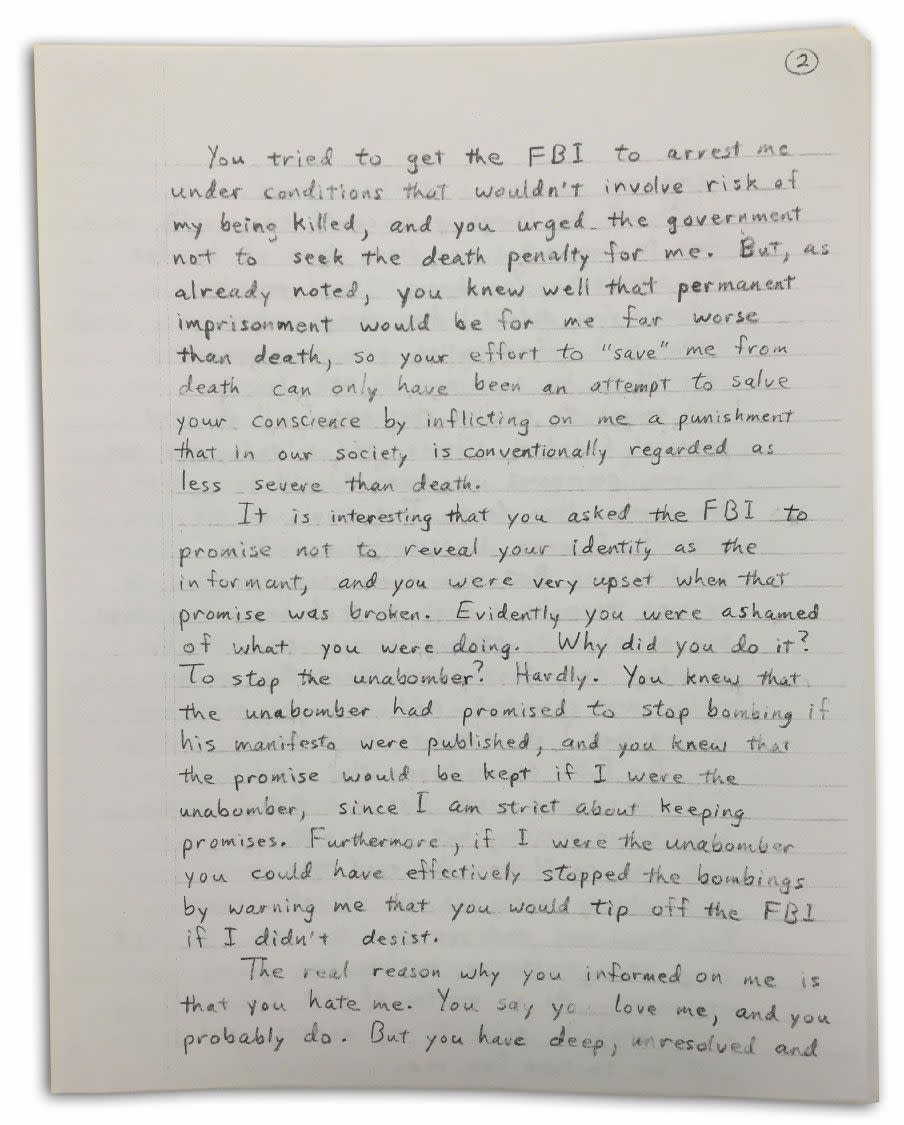 2
You tried to get the FBI to arrest me
under conditions that wouldn't involve risk of
my being killed, and you urged the government
not to seek the death penalty for me. But, as
already noted, you knew well that permanent
imprisonment would be for me far worse
than death, so your effort to "save" me from
death can only have been an attempt to salve
your conscience by inflicting on me a punishment
that in our society is conventionally regarded as
less severe than death.
It is interesting that you asked the FBI to
promise not to reveal your identity as the
informant, and you were very upset when that
promise was broken. Evidently you were ashamed
of what you were doing. Why did you do it?
To stop the unabomber? Hardly. You knew that
the unabomber had promised to stop bombing if
his manifesto were published, and you knew that
the promise would be kept if I were the
unabomber, since I am strict about keeping
promises. Furthermore, if I were the unabomber
you could have effectively stopped the bombings
by warning me that you would tip off the FBI
if I didn't desist.
The real reason why you informed on me is
that you hate me. You say you love me, and you
probably do. But you have deep, unresolved and